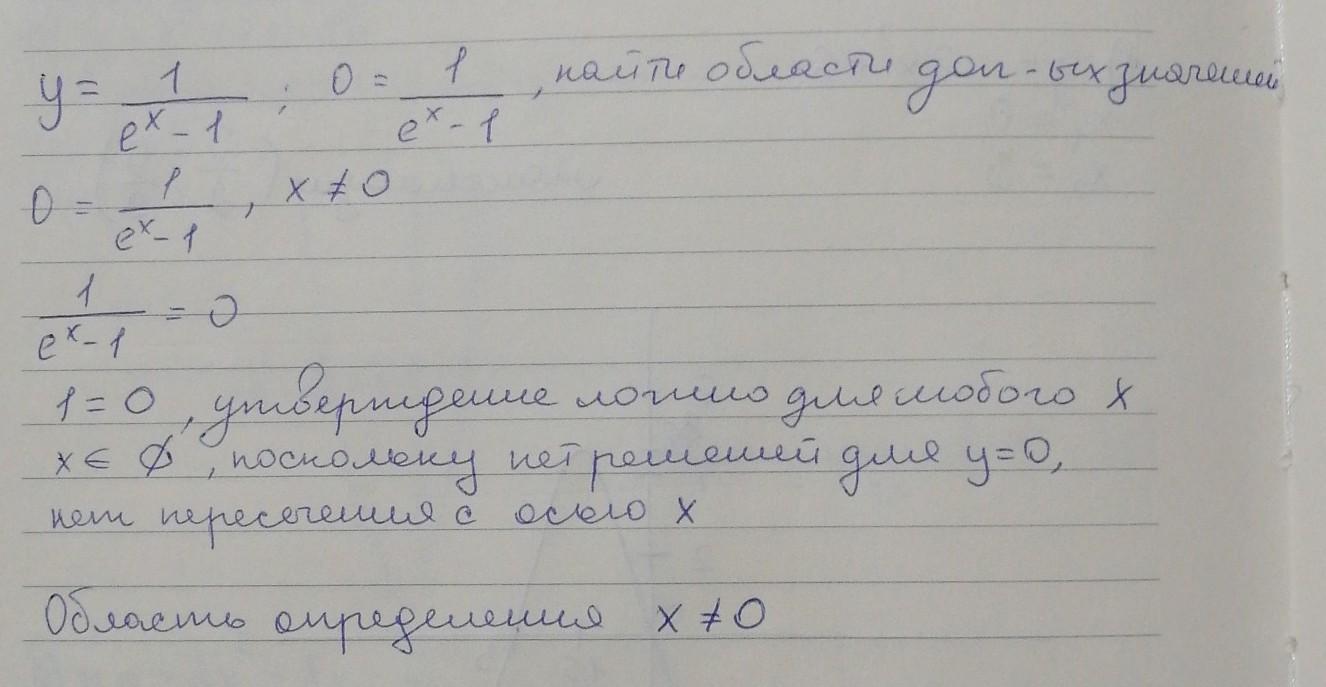 y = 1/(e^x - 1) ; 0 = 1/(e^x - 1) , найти области доп-ых значений
0 = 1/(e^x - 1) , x ≠ 0
1/(e^x - 1) = 0
1 = 0 , утверждение ложно для любого x
x ∈ ∅ , поскольку нет решений для y=0,
нет пересечения с осью x
Область определения x ≠ 0